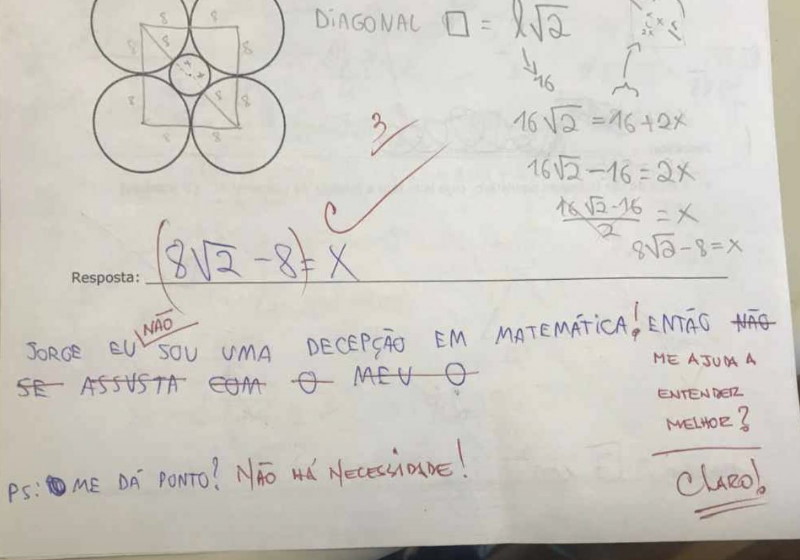 8 8
8 8 8
x x
8 8 8
8 8
DIAGONAL □ = l√2
16
2x x 8
3
16√2 = 16 + 2x
16√2 - 16 = 2x
16√2 - 16 / 2 = x
8√2 - 8 = x
C
Resposta: (8√2 - 8) = x
JORGE EU NÃO SOU UMA DECEPÇÃO EM MATEMÁTICA! ENTÃO NÃO
SE ASSUSTA COM O MEU O
ME AJUDA A
ENTENDER
MELHOR?
CLARO!
PS: ME DÁ PONTO? NÃO HÁ NECESSIDADE!